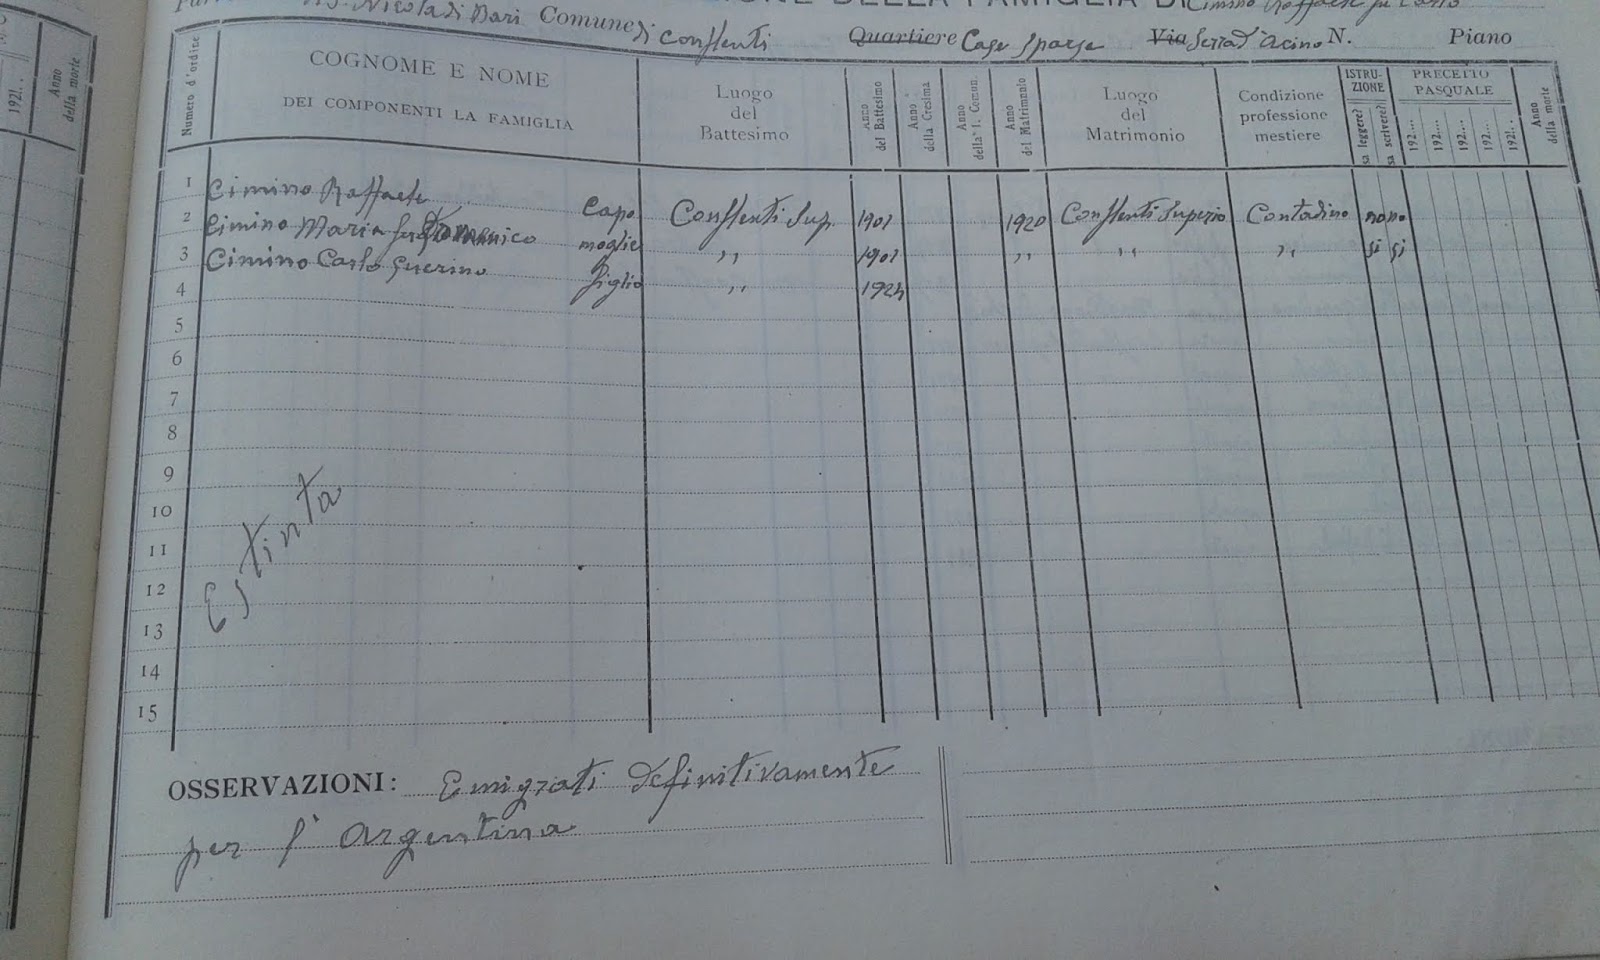 S. Nicola di Bari Comune di Conflenti Quartiere Case Sparse Via Serra d'Acino N. Piano
DELLA FAMIGLIA DI Cimino Raffaele fu Carlo
Numero d'ordine
COGNOME E NOME
DEI COMPONENTI LA FAMIGLIA
Luogo del Battesimo
Anno del Battesimo
Anno della Cresima
Anno della 1. Comun.
Anno del Matrimonio
Luogo del Matrimonio
Condizione professione mestiere
ISTRUZIONE
sa leggere?
sa scrivere?
PRECETTO PASQUALE
192.... 192.... 192.... 192.... 192...
Anno della morte
192...
Anno della morte
1 Cimino Raffaele Capo Conflenti Sup. 1901 1920 Conflenti Superio Contadino no no
2 Cimino Maria Domenico moglie ,, 1901 ,, ,, ,, si si
3 Cimino Carlo Guerino figlio ,, 1924
4
5
6
7
8
9
10
11
12
13
14
15
Estinta
OSSERVAZIONI: Emigrati definitivamente
per l'Argentina